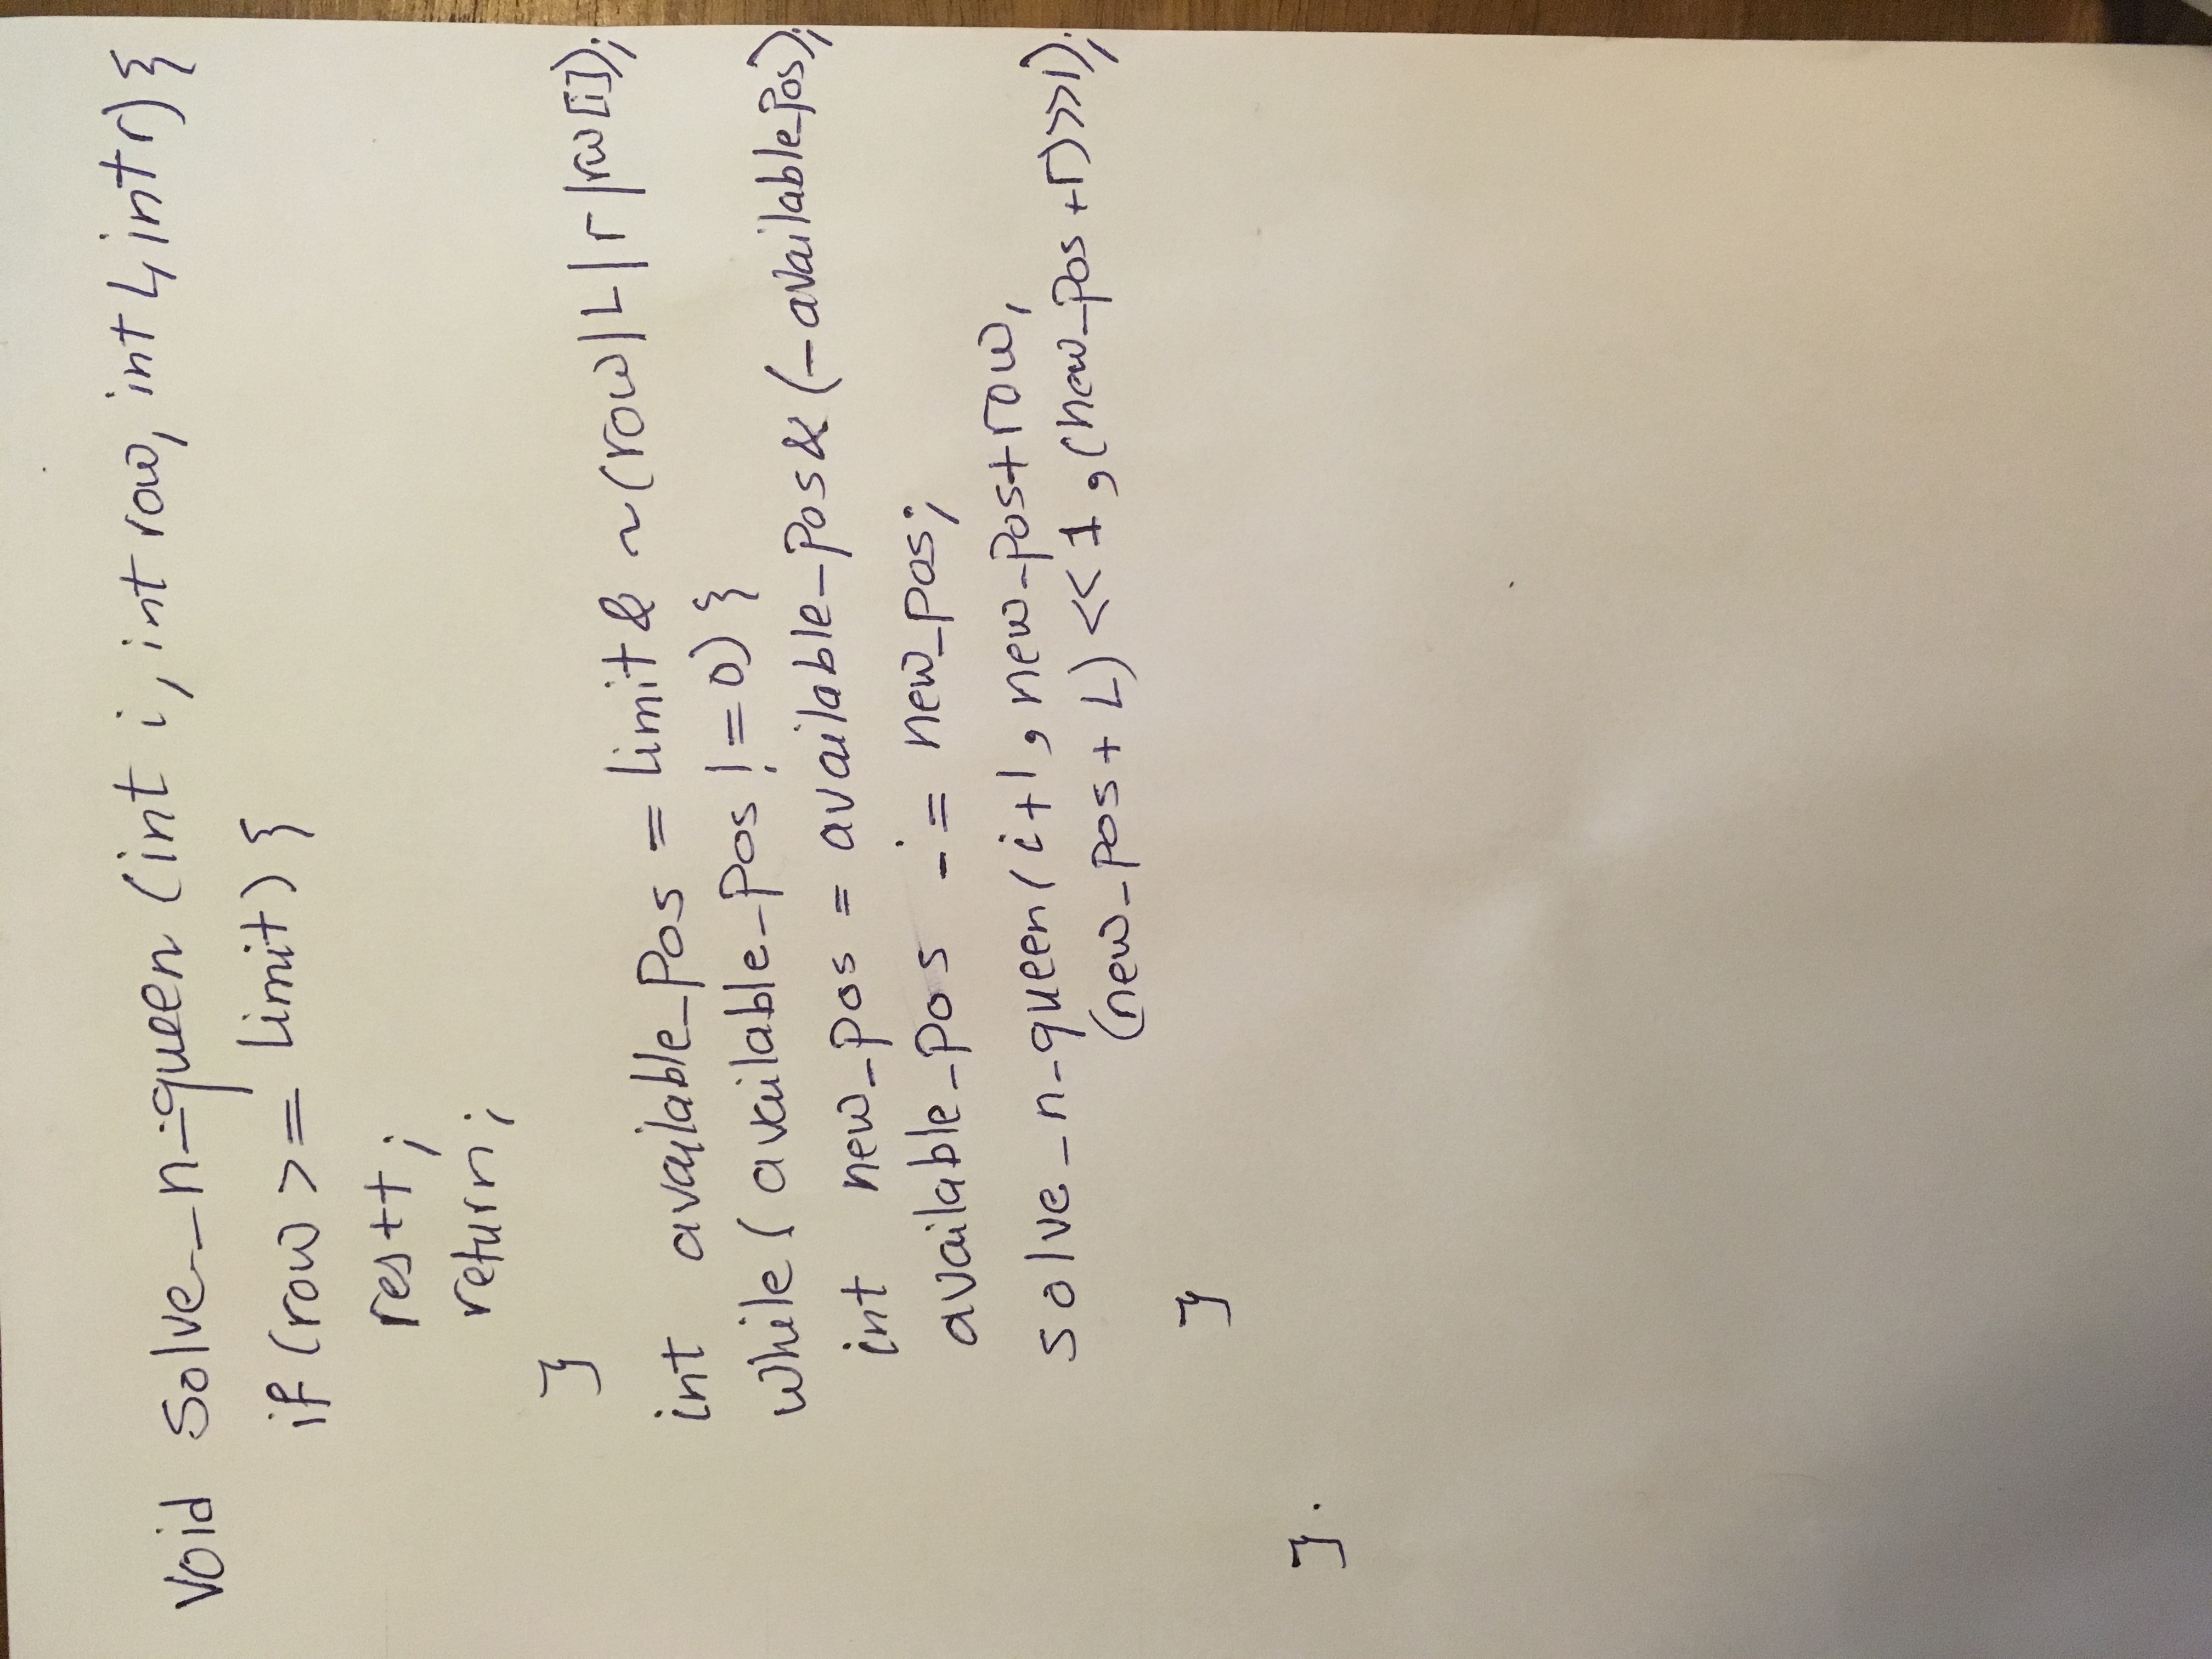 void solve_n_queen (int i, int row, int L, int r) {
if (row >= limit) {
res++;
return;
}
int available_pos = limit & ~(row|L|r|rw[i]);
while (available_pos != 0) {
int new_pos = available_pos & (-available_pos);
available_pos -= new_pos;
solve_n_queen(i+1, new_pos+row,
(new_pos + L) << 1, (new_pos + r) >> 1);
}
}.